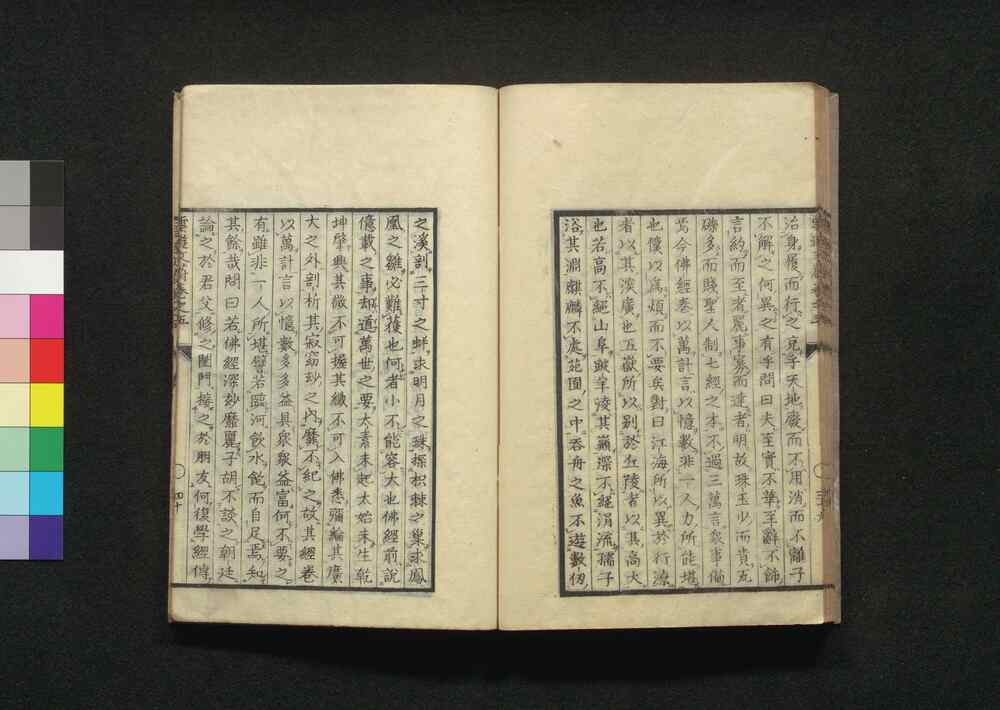 治身履而行之充乎天地廢而不用消而不離子
不解之何異之有乎問曰夫至實不華至辭不飾
言約而至者麗事寡而達者明故珠玉少而貴瓦
礫多而賤聖人制七經之本不過三萬言衆事備
焉今佛經卷以萬計言以億數非一人力所能堪
也僕以爲煩而不要矣對曰江海所以異於行潦
者以其深廣也五嶽所以別於丘陵者以其高大
也若高不絕山阜跛羊淩其巔深不絕涓流孺子
浴其淵麒麟不處苑囿之中吞舟之魚不遊數仞
之溪剖三寸之蚌求明月之珠探枳棘之巢求鳳
凰之雛必難獲也何者小不能容大也佛經前說
億載之事却道萬世之要太素未起太始未生乾
坤肇興其微不可握其纖不可入佛悉彌綸其廣
大之外剖析其寂窈玅之內靡不紀之故其經卷
以萬計言以億數多多益具衆衆益富何不要之
有雖非一人所堪譬若臨河飮水飽而自足焉知
其餘哉問曰若佛經深玅靡麗子胡不談之朝廷
論之於君父修之閨門接之於朋友何復學經傳
四十